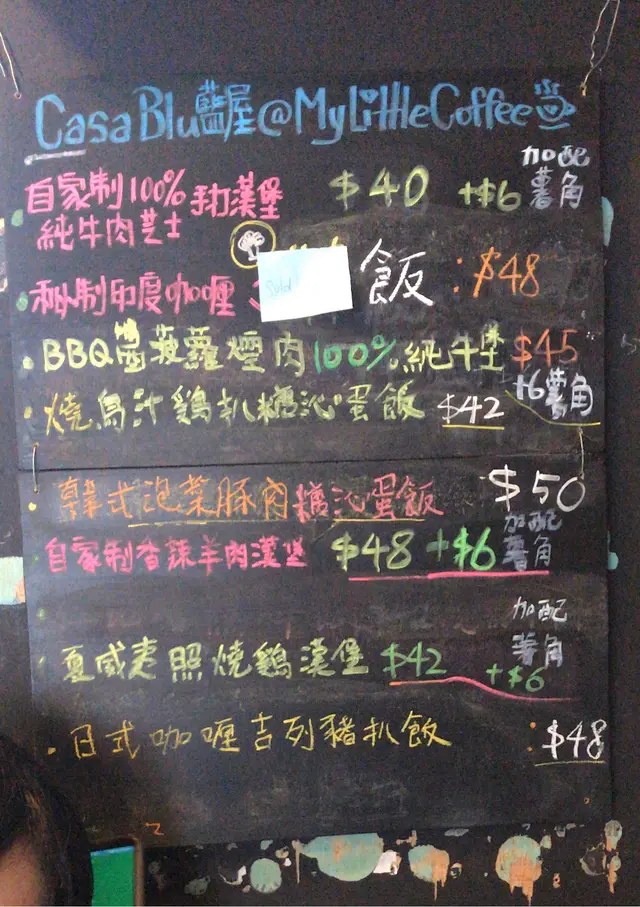 Casa Blu 藍屋 @ My Little Coffee
自家制100% 手打漢堡 $40 +$6 加配薯角
純牛肉芝士
秘制印度咖喱 飯 : $48
Sold
• BBQ醬菠蘿煙肉100%純牛堡 $45
+6薯角
• 燒鳥汁鷄扒糖沁蛋飯 $42
• 韓式泡菜豚肉糖沁蛋飯 $50
自家制香辣羊肉漢堡 $48 +$6 加配薯角
夏威夷照燒鷄漢堡 $42 +$6 加配薯角
• 日式咖喱吉列豬扒飯 : $48